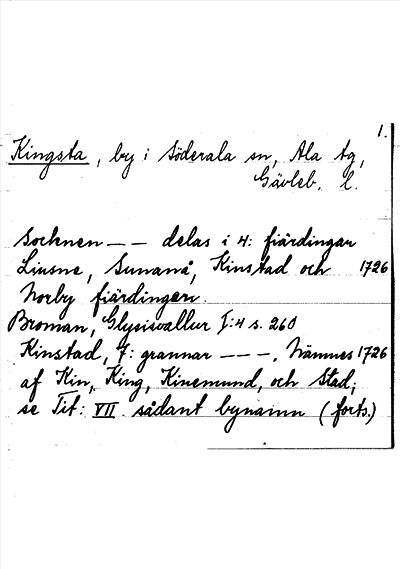 1.
Kingsta, by i Söderala sn, Ala tg,
Gävleb. l.
Socknen - - delas i 4: fiärdingar
Liusne, Sunanå, Kinstad och 1726
Norby fiärdingen.
Broman, Glysisvallur I:4 s. 260
Kinstad, 7: grannar - - -. Nämnes 1726
af Kin, King, Kinemund, och Stad;
se Tit: VII sådant bynamn (forts.)